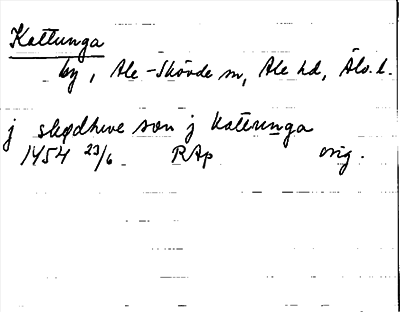 Kattunga
by, Ale-Skövde sn, Ale hd, Älv. l.
j skødhwe son j Kattunga
1454 23/6 RAp orig.